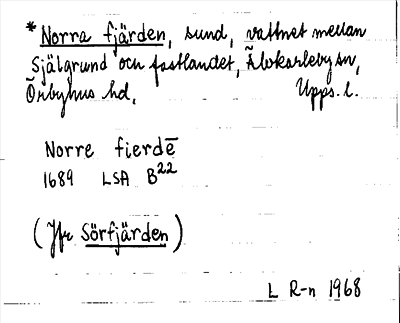 * Norra fjärden, sund, vattnet mellan
Själgrund och fastlandet, Älvkarleby sn,
Örbyhus hd, Upps. l.
Norre fierdē
1689 LSA B22
(Jfr Sörfjärden)
L R-n 1968